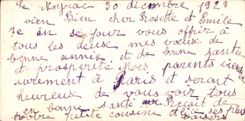 le 30 décembre 1929
bien cher Rosette et Emile
Je en se jour vous offri à
tous les deuse mes vœux de
bonne année et de bonne santé
et prosperite Nos parents
surement à Paris et seront
heureux de vous voir tous
en bonne santé
petite cousine